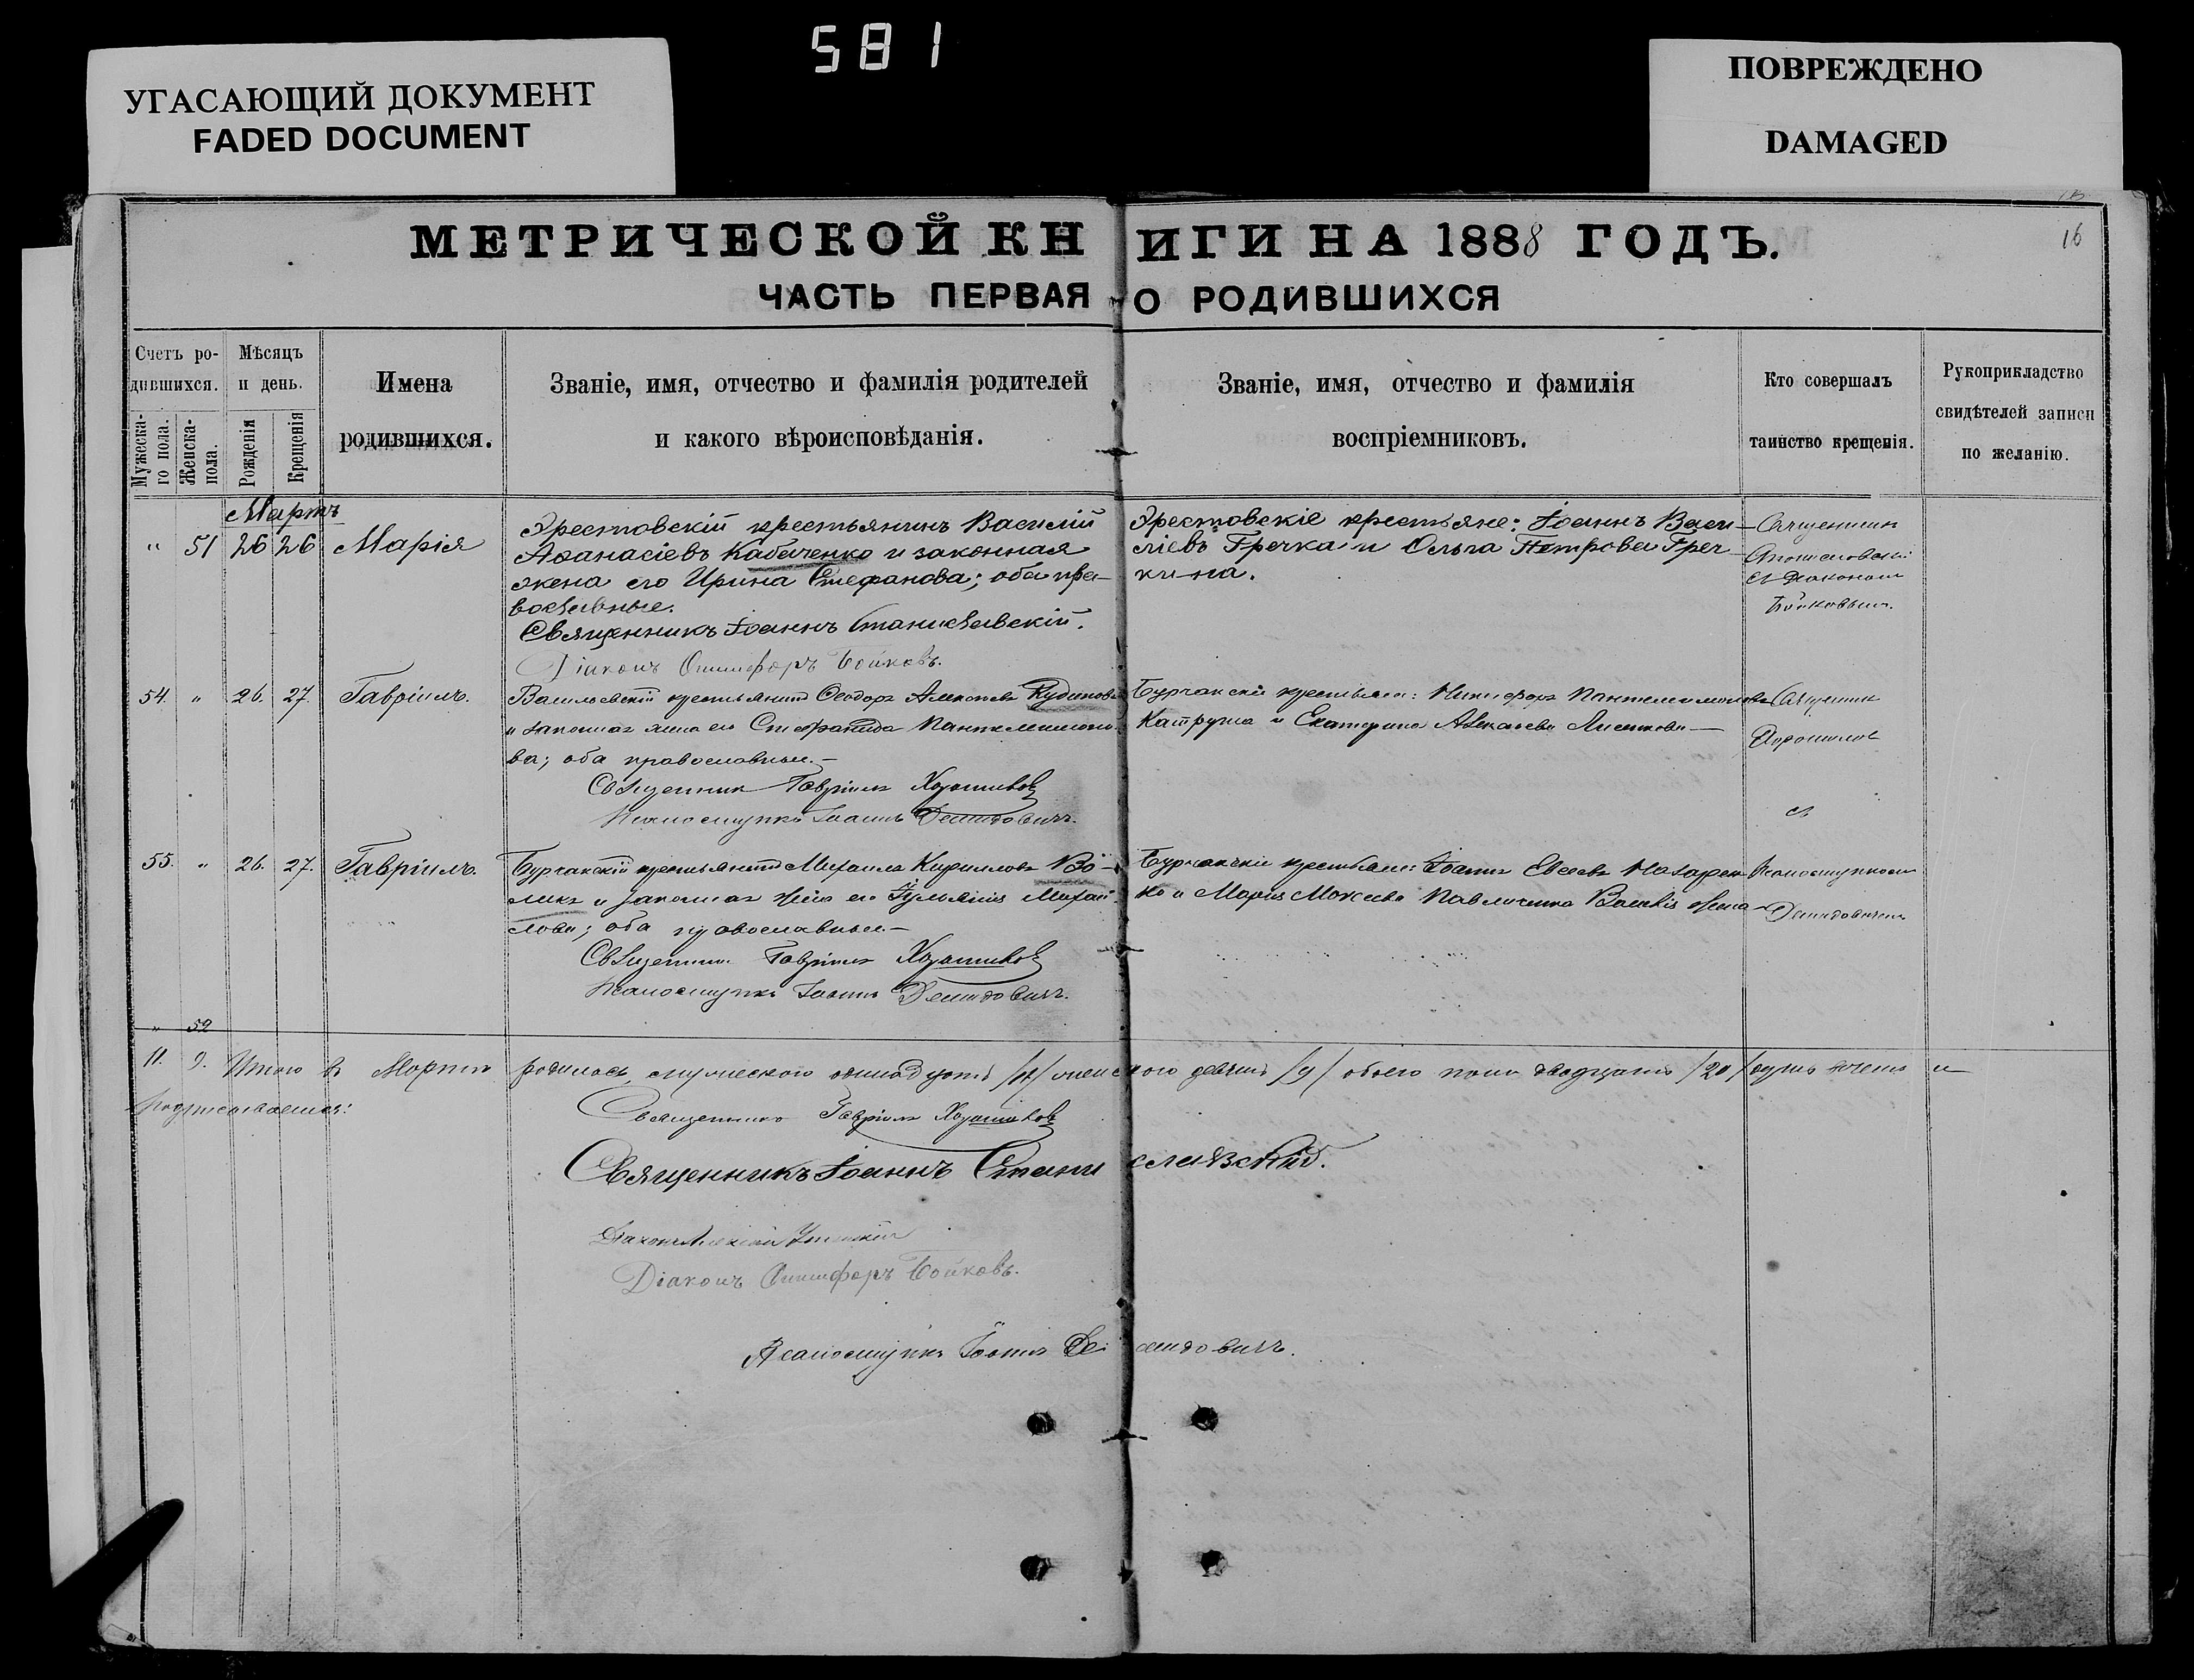 581
УГАСАЮЩИЙ ДОКУМЕНТ
FADED DOCUMENT
ПОВРЕЖДЕНО
DAMAGED
16
МЕТРИЧЕСКОЙ КНИГИ НА 1888 ГОДЪ.
ЧАСТЬ ПЕРВАЯ О РОДИВШИХСЯ
Счетъ ро-
дившихся.
Мужеска-
го пола.
Женска-
пола.
Мѣсяцъ
и день.
Рожденія
Крещенія
Имена
родившихся.
Званіе, имя, отчество и фамилія родителей
и какого вѣроисповѣданія.
Званіе, имя, отчество и фамилія
воспріемниковъ.
Кто совершалъ
таинство крещенія.
Рукоприкладство
свидѣтелей записи
по желанію.
Мартъ
" 51 26 26 Марія
крестьянинъ Василій
Аѳанасіевъ Кабаченко и законная
жена его Ирина Стефанова; оба пра-
вославные.
Священникъ Іоаннъ Станиславскій.
Діаконъ Онисифоръ Бойковъ.
крестьяне: Іоаннъ Васи-
ліевъ Гречка и Ольга Петрова Греч-
кина.
Священник
Діаконом
Бойковым.
54. " 26. 27. Гавріилъ.
Васильевскій крестьянинъ Ѳеодоръ
и законная жена его Стефанида Пантелеимоно-
ва; оба православные.—
Священник Гавріил
Псаломщикъ Іоаннъ Демидовичъ.
Бурчакскіе крестьяне: Никифоръ Пантелеимоновъ
и Екатерина
Священник
с
55. " 26. 27. Гавріилъ.
Бурчакскій крестьянинъ Михаилъ Кирилловъ Во-
ликъ и законная жена его Іульянія Михай-
лова; оба православные.—
Священник Гавріил
Псаломщикъ Іоаннъ Демидовичъ.
Бурчакскіе крестьяне: Іоаннъ Евсеевъ Назарен-
ко и Марія Мокеева Павличенка жена
Псаломщиком
Демидовичем
" 52
11. 9. Итого в Марте родилось мужеского одинадцать /11/ женского девять /9/ обоего пола двадцать /20/ душъ в чем и
подписываемся:
Священникъ Гавріилъ
Священникъ Іоаннъ Станиславскій.
Діаконъ
Діаконъ Онисифоръ Бойковъ.
Псаломщикъ Іоаннъ Демидовичъ.